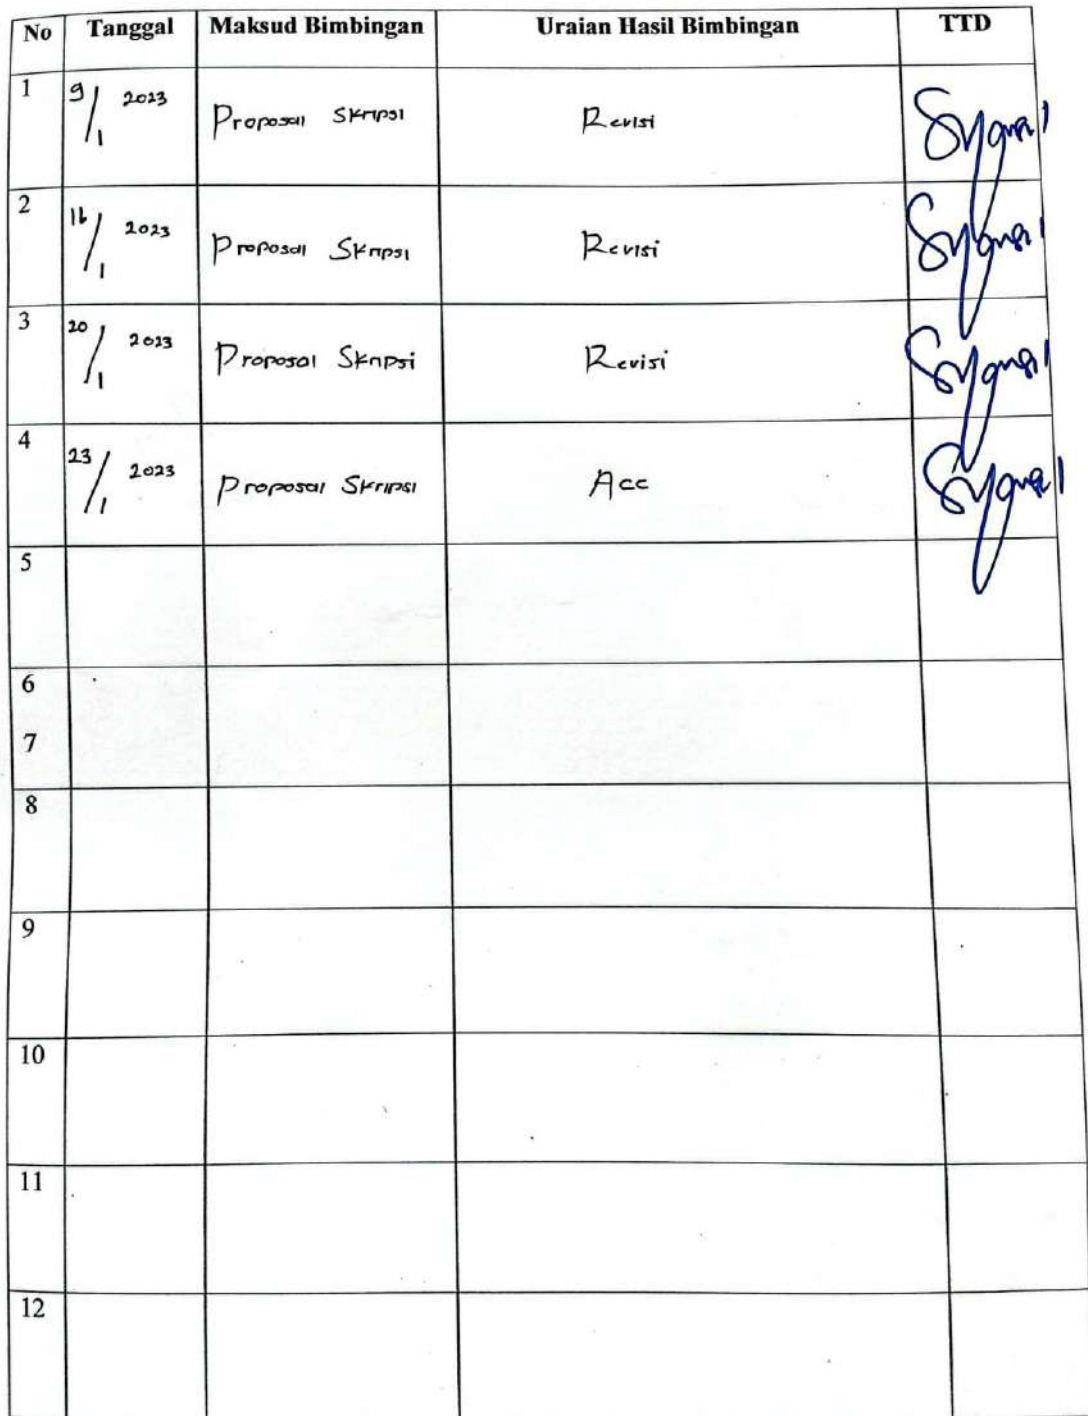 No Tanggal Maksud Bimbingan Uraian Hasil Bimbingan TTD
1 9/1 2023 Proposal Skripsi Revisi
2 16/1 2023 Proposal Skripsi Revisi
3 20/1 2023 Proposal Skripsi Revisi
4 23/1 2023 Proposal Skripsi Acc
5
6
7
8
9
10
11
12